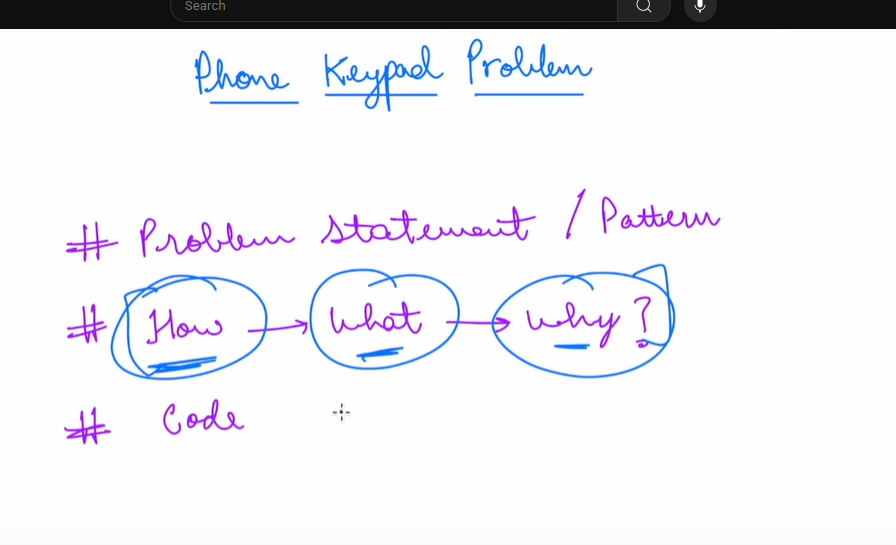 Search
Phone Keypad Problem
# Problem statement / Pattern
# How → What → Why?
# Code